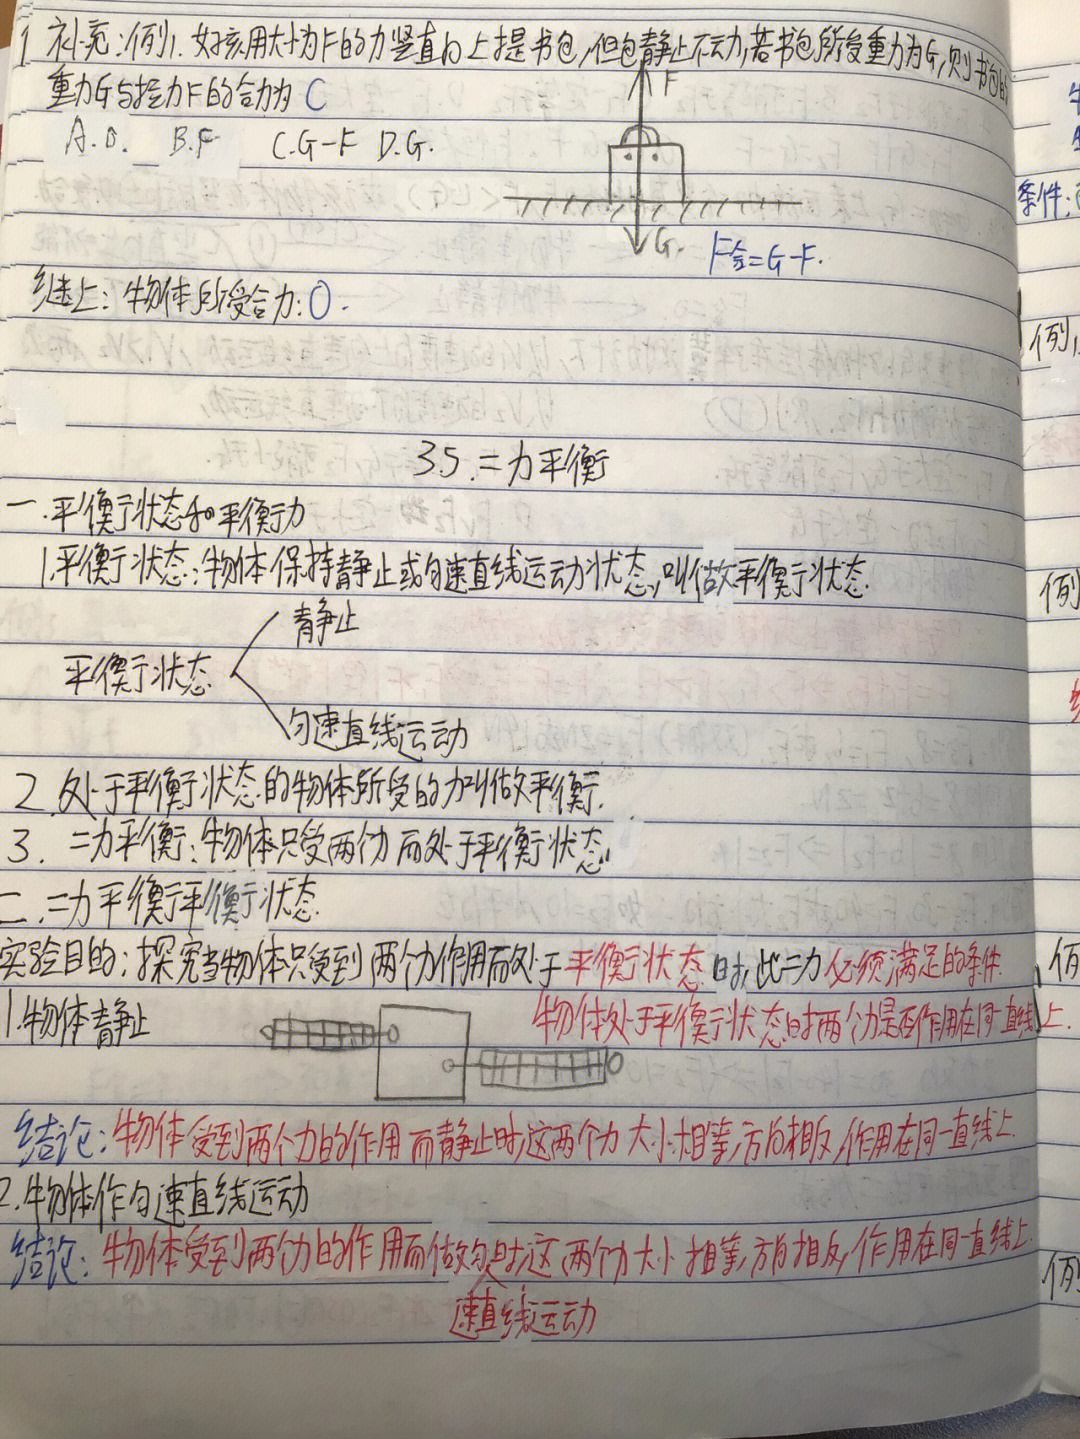 补充:例1.女孩用大小为F的力竖直向上提书包,但包静止不动,若书包所受重力为G,则书包的
重力G与拉力F的合力为 C
A.0. B.F C.G-F D.G.
F
G.
F合=G-F.
继上:物体所受合力:0.
35.二力平衡
一.平衡状态和平衡力
1.平衡状态:物体保持静止或匀速直线运动状态,叫做平衡状态.
静止
平衡状态
匀速直线运动
2.处于平衡状态的物体所受的力叫做平衡.
3.二力平衡:物体只受两个力而处于平衡状态
二.二力平衡平衡状态
实验目的:探究当物体只受到两个力作用而处于平衡状态时,此二力必须满足的条件.
1.物体静止
物体处于平衡状态时两个力是否作用在同一直线上.
结论:物体受到两个力的作用而静止时,这两个力大小相等,方向相反,作用在同一直线上.
2.物体作匀速直线运动
结论:物体受到两个力的作用而做匀时,这两个力大小相等,方向相反,作用在同一直线上.
速直线运动
条件:
例1
例
例
例